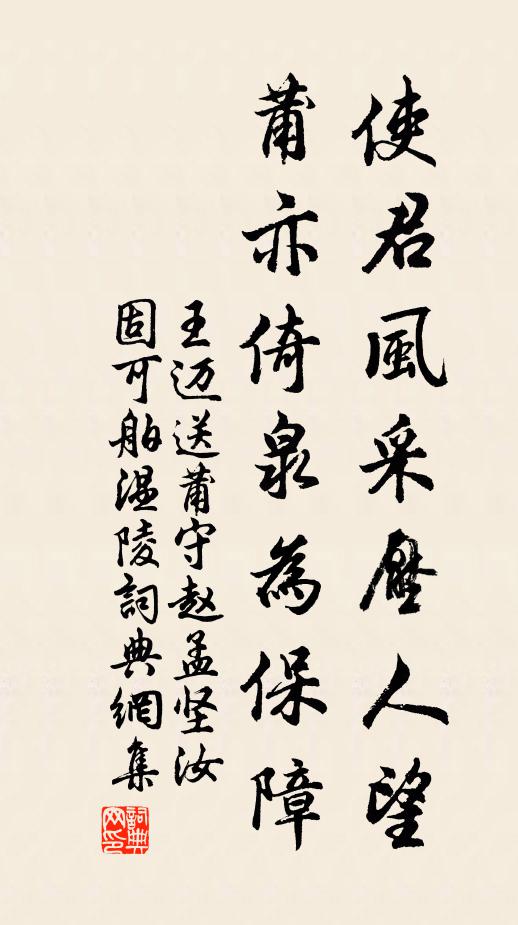 使君風采壓人望
莆亦倚泉為保障
王迈送莆守赵孟坚汝
固可舶温陵詞典網集
詞典网印